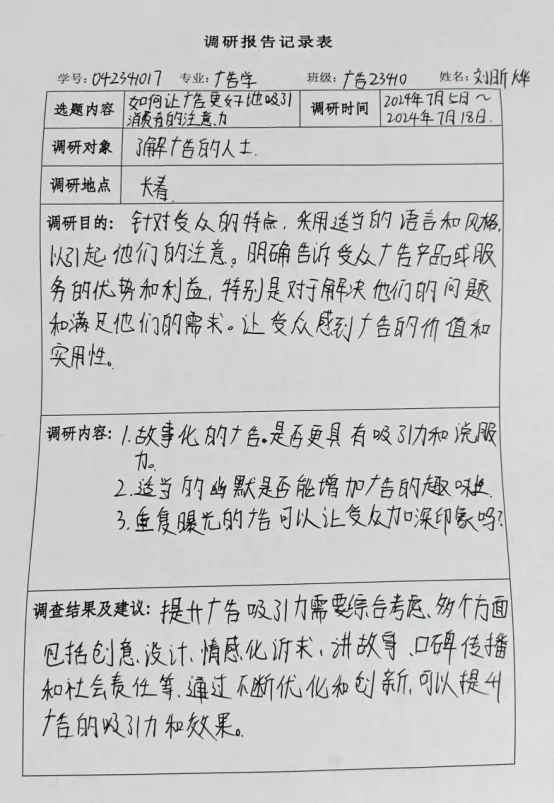 调研报告记录表
学号: 042341017 专业: 广告学 班级: 广告23410 姓名: 刘昕烨
选题内容 如何让广告更好地吸引
消费者的注意力
调研时间 2024年7月5日~
2024年7月18日.
调研对象 了解广告的人士.
调研地点 长春.
调研目的: 针对受众的特点,采用适当的语言和风格,
以引起他们的注意。明确告诉受众广告产品或服
务的优势和利益,特别是对于解决他们的问题
和满足他们的需求。让受众感到广告的价值和
实用性。
调研内容: 1.故事化的广告。是否更具有吸引力和说服
力。
2.适当的幽默是否能增加广告的趣味性.
3.重复曝光的广告可以让受众加深印象吗?
调查结果及建议: 提升广告吸引力需要综合考虑、多个方面
包括创意、设计、情感化诉求、讲故事、口碑传播
和社会责任等,通过不断优化和创新,可以提升
广告的吸引力和效果。